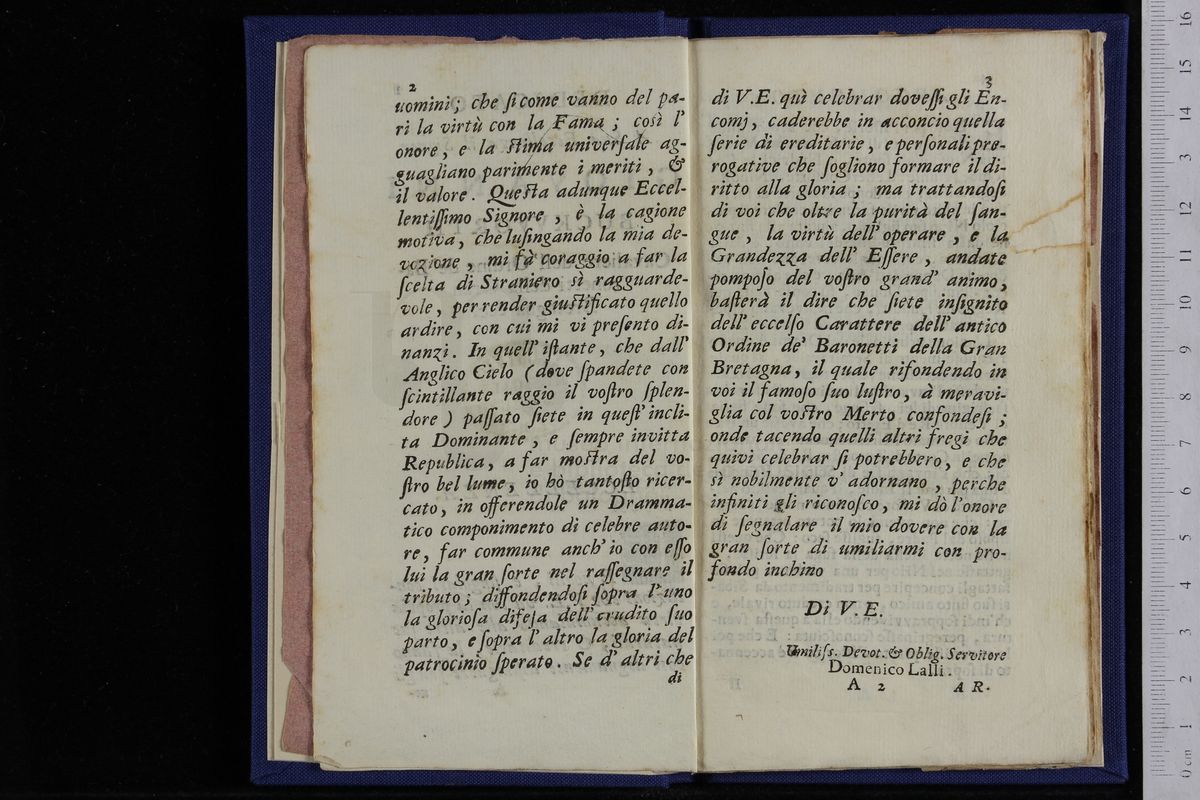 2
uomini; che ſicome vanno del pa-
ri la virtù con la Fama; così l'
onore, e la ſtima univerſale ag-
guagliano parimente i meriti, &
il valore. Queſta adunque Eccel-
lentiſſimo Signore, è la cagione
motiva, che luſingando la mia de-
vozione, mi fà coraggio a far la
ſcelta di Straniero sì ragguarde-
vole, per render giuſtificato quello
ardire, con cui mi vi preſento di-
nanzi. In quell' iſtante, che dall'
Anglico Cielo (dove ſpandete con
ſcintillante raggio il voſtro ſplen-
dore) paſſato ſiete in queſt' incli-
ta Dominante, e ſempre invitta
Republica, a far moſtra del vo-
ſtro bel lume, io hò tantoſto ricer-
cato, in offerendole un Dramma-
tico componimento di celebre auto-
re, far commune anch' io con eſſo
lui la gran ſorte nel raſſegnare il
tributo; diffondendoſi ſopra l'uno
la glorioſa difeſa dell' erudito ſuo
parto, e ſopra l' altro la gloria del
patrocinio ſperato. Se d' altri che
di
3
di V.E. quì celebrar doveſſi gli En-
comj, caderebbe in acconcio quella
ſerie di ereditarie, e perſonali pre-
rogative che ſogliono formare il di-
ritto alla gloria; ma trattandoſi
di voi che oltre la purità del ſan-
gue, la virtù dell' operare, e la
Grandezza dell' Eſſere, andate
pompoſo del voſtro grand' animo,
baſterà il dire che ſiete inſignito
dell' eccelſo Carattere dell' antico
Ordine de' Baronetti della Gran
Bretagna, il quale rifondendo in
voi il famoſo ſuo luſtro, à meravi-
glia col voſtro Merto confondeſi;
onde tacendo quelli altri fregi che
quivi celebrar ſi potrebbero, e che
sì nobilmente v' adornano, perche
infiniti gli riconoſco, mi dò l'onore
di ſegnalare il mio dovere con la
gran ſorte di umiliarmi con pro-
fondo inchino
Di V. E.
Umiliſs. Devot. & Oblig. Servitore
Domenico Lalli.
A 2 A R.
0 cm 1 2 3 4 5 6 7 8 9 10 11 12 13 14 15 16